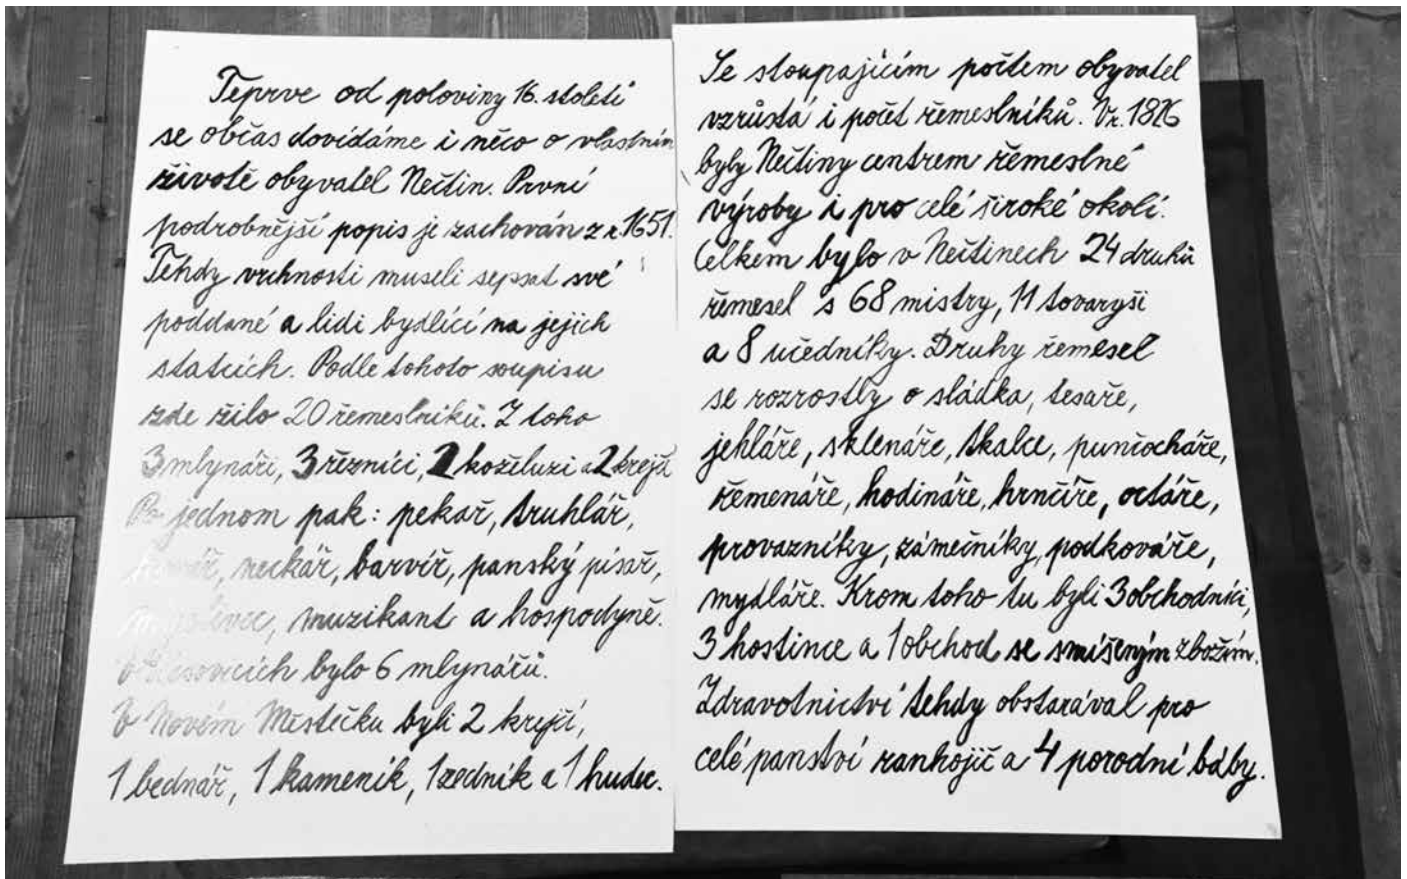 Teprve od poloviny 16. století
se občas dovídáme i něco o vlastním
životě obyvatel Nečtin. První
podrobnější popis je zachován z r. 1651.
Tehdy vrchnosti museli sepsat své
poddané a lidi bydlící na jejich
statcích. Podle tohoto soupisu
zde žilo 20 řemeslníků. Z toho
3 mlynáři, 3 řezníci, 2 koželuzi a 2 krejčí
Po jednom pak: pekař, truhlář,
neckář, barvíř, panský písař,
muzikant a hospodyně.
bylo 6 mlynářů.
V Novém Městečku byli 2 krejčí,
1 bednář, 1 kameník, 1 zedník a 1 hudec.
Se stoupajícím počtem obyvatel
vzrůstá i počet řemeslníků. V r. 1826
byly Nečtiny centrem řemeslné
výroby i pro celé široké okolí.
Celkem bylo v Nečtinech 24 druhů
řemesel s 68 mistry, 11 tovaryši
a 8 učedníky. Druhy řemesel
se rozrostly o sládka, tesaře,
jehláře, sklenáře, tkalce, punčocháře,
řemenáře, hodináře, hrnčíře, octáře,
provazníky, zámečníky, podkováře,
mydláře. Krom toho tu byli 3 obchodníci,
3 hostince a 1 obchod se smíšeným zbožím.
Zdravotnictví tehdy obstarával pro
celé panství ranhojič a 4 porodní báby.